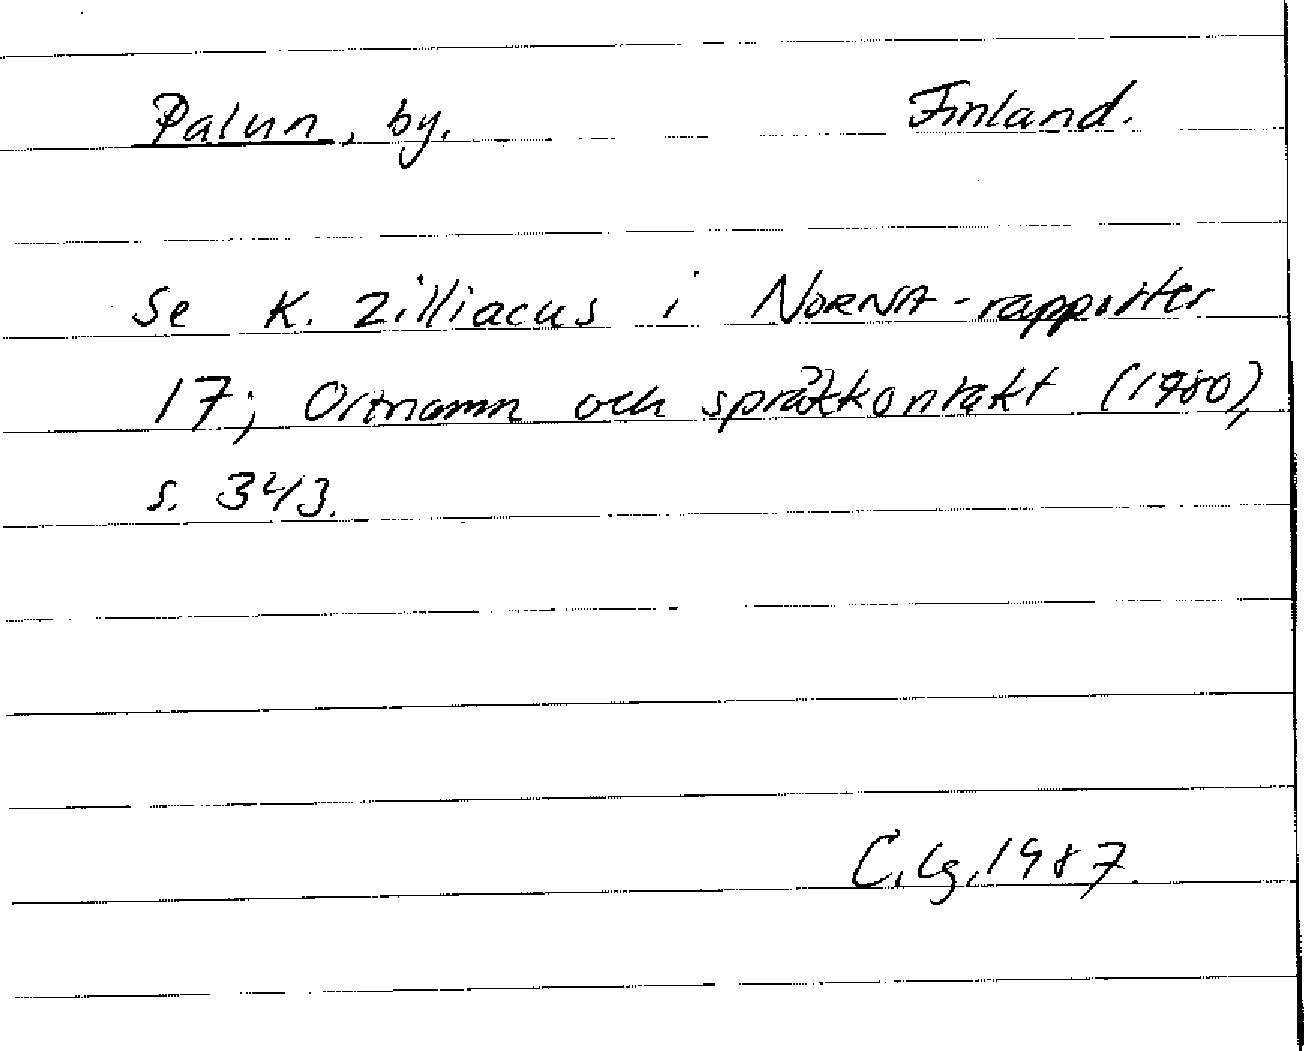 Palun, by. Finland.
Se K. Zilliacus i NORNA-rapporter
17; Ortnamn och språkkontakt (1980),
s. 343.
C. Lg. 1987.